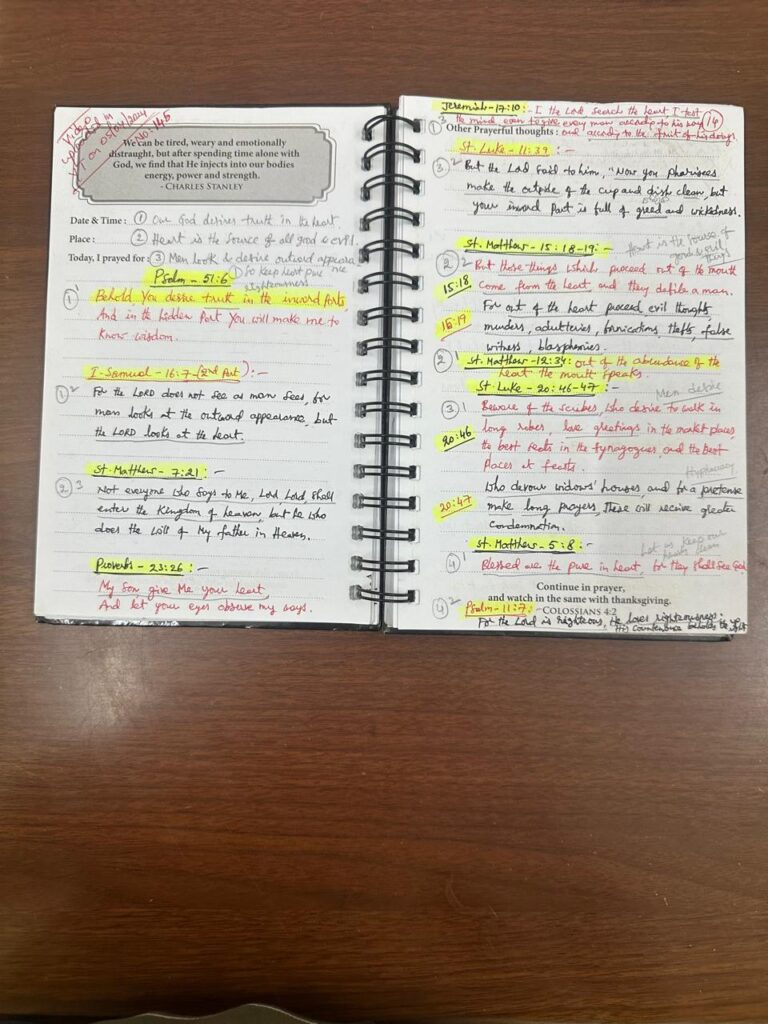 Video
uploaded in
on 05/04/2024
No: 145
We can be tired, weary and emotionally
distraught, but after spending time alone with
God, we find that He injects into our bodies
energy, power and strength.
- CHARLES STANLEY
Date & Time : ① Our God desires truth in the heart
Place : ② Heart is the source of all good & evil
Today, I prayed for : ③ Men look & desire outward appeara
① So keep heart pure
righteousness
Psalm - 51:6
① Behold You desire truth in the inward Parts,
And in the hidden Part You will make me to
Know wisdom.
I-Samuel - 16:7 - (2nd Part) :-
①² For the LORD does not see as man sees, for
man looks at the outward appearance, but
the LORD looks at the heart.
St. Matthew - 7:21 :-
②³ Not everyone who says to Me, Lord Lord, shall
enter the Kingdom of heaven, but he who
does the will of My father in Heaven.
Proverbs - 23:26 :-
My Son, give Me your heart,
And let your eyes observe my ways.
Jeremiah - 17:10 :- I the Lord search the heart I test
③ the mind even to give every man according to his ways
16
① Other Prayerful thoughts : and according to the fruit of his doings
St. Luke - 11:39 :-
③² But the Lord said to him, "Now you pharisees
make the outside of the cup and dish clean, but
your inward Part is full of greed and wickedness.
St. Matthew - 15:18-19 :-
Heart is the source of
good & evil
things
②² But those things which proceed out of the mouth
15:18 come from the heart, and they defile a man.
For out of the heart proceed evil thoughts,
15:19 murders, adulteries, fornications, thefts, false
witness, blasphemies.
②¹ St. Matthew - 12:34: out of the abundance of the
heart the mouth speaks.
St. Luke - 20:46-47 :-
Men desire
③¹ Beware of the scribes, who desire to walk in
20:46 long robes, love greetings in the market places,
the best seats in the synagogues, and the Best
Places at feasts.
Hypocracy
Who devour widows' houses, and for a pretense
20:47 make long prayers, These will receive greater
Condemnation.
St. Matthew - 5:8 :-
Let us keep our
hearts clean
④¹ Blessed are the pure in heart, for they shall see God
Continue in prayer,
and watch in the same with thanksgiving.
-COLOSSIANS 4:2
④² Psalm - 11:7 :-
For the Lord is righteous, He loves righteousness:
His countenance beholds the